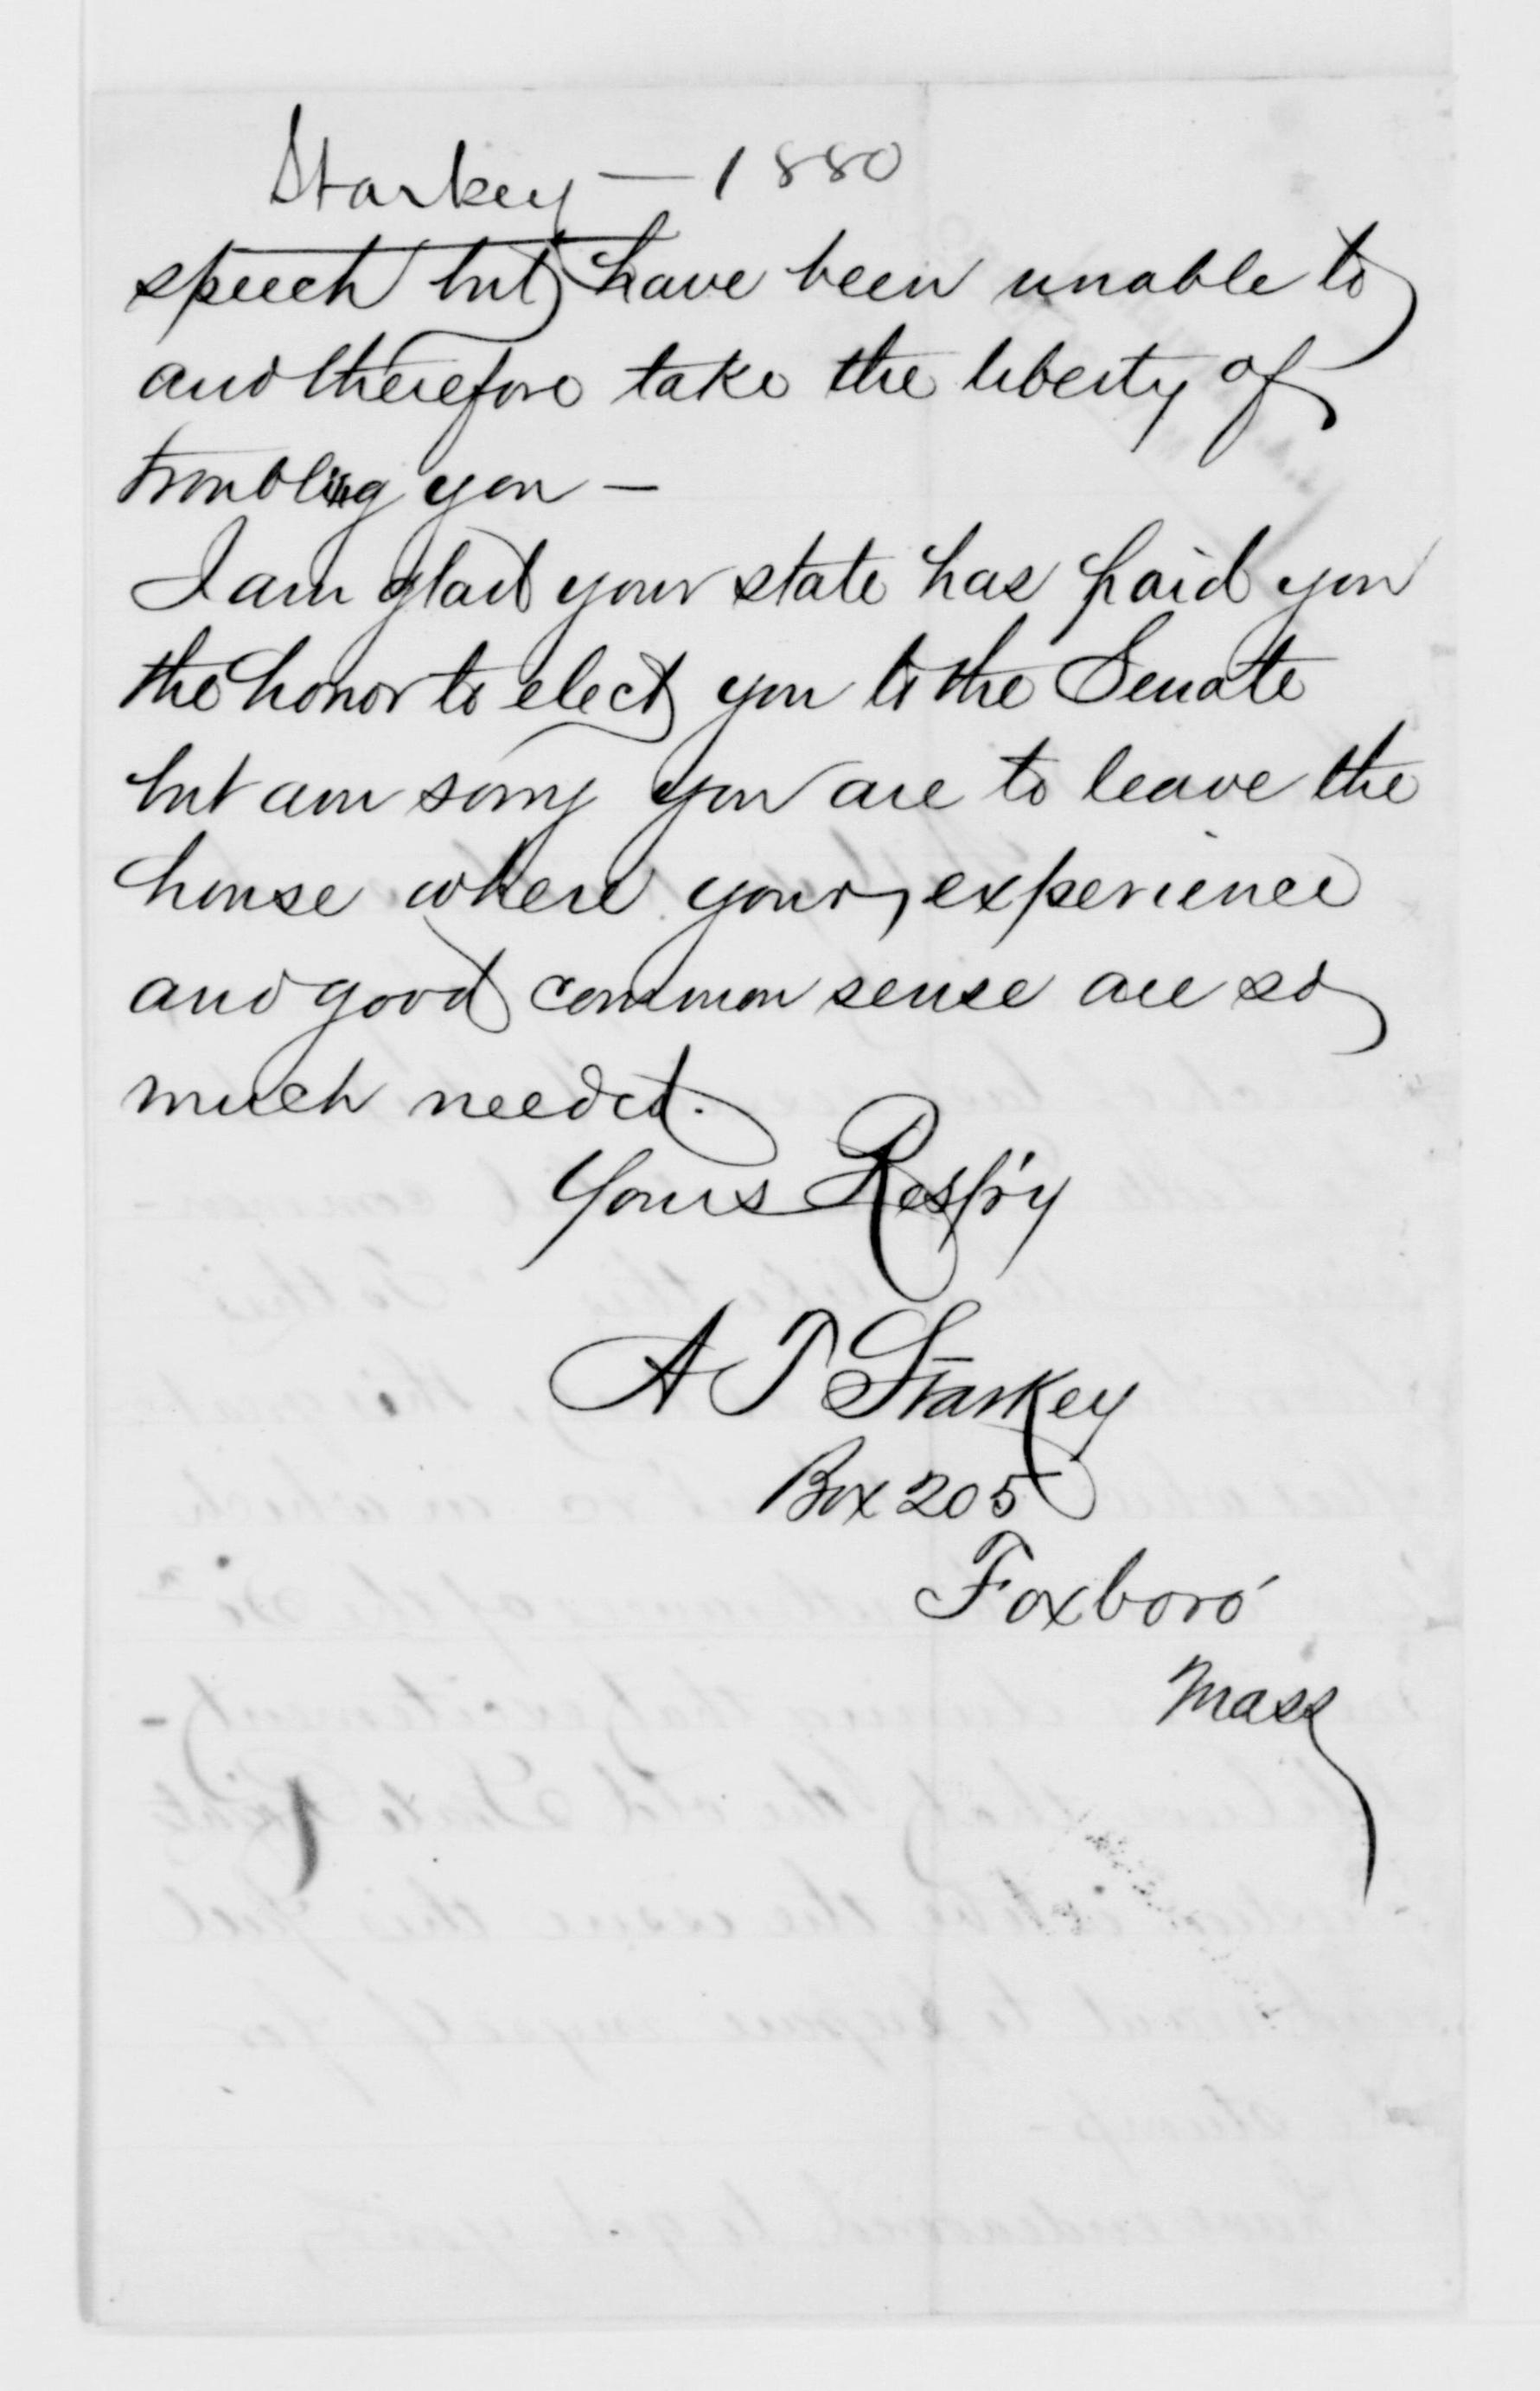 Starkey — 1880
speech but have been unable to
and therefore take the liberty of
troubling you —
I am glad your state has paid you
the honor to elect you to the Senate
but am sorry you are to leave the
house where your experience
and good common sense are so
much needed.
Yours Resp'y
A T Starkey
Box 205
Foxboro'
Mass